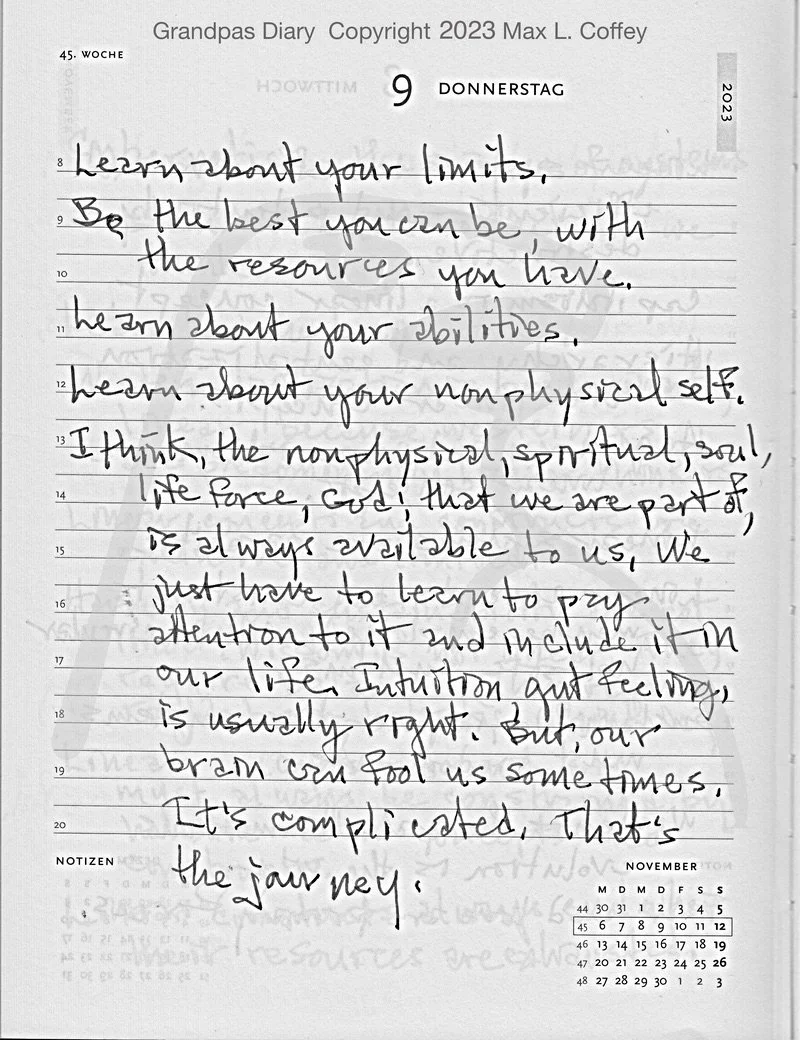 Grandpas Diary Copyright 2023 Max L. Coffey
45. WOCHE
9 DONNERSTAG
2023
8 Learn about your limits.
9 Be the best you can be, with
the resources you have.
10
11 Learn about your abilities.
12 Learn about your nonphysical self.
13 I think, the nonphysical, spiritual, soul,
14 life force, God; that we are part of,
15 is always available to us, We
just have to learn to pay
16
attention to it and include it in
17 our life. Intuition, gut feeling,
18 is usually right. But, our
19 brain can fool us sometimes.
20 It's complicated. That's
the journey.
NOTIZEN
NOVEMBER
M D M D F S S
44 30 31 1 2 3 4 5
45 6 7 8 9 10 11 12
46 13 14 15 16 17 18 19
47 20 21 22 23 24 25 26
48 27 28 29 30 1 2 3